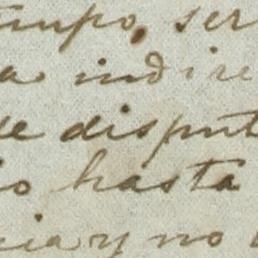 tiempo, ser
a indire
de disput
io hasta
cia y no